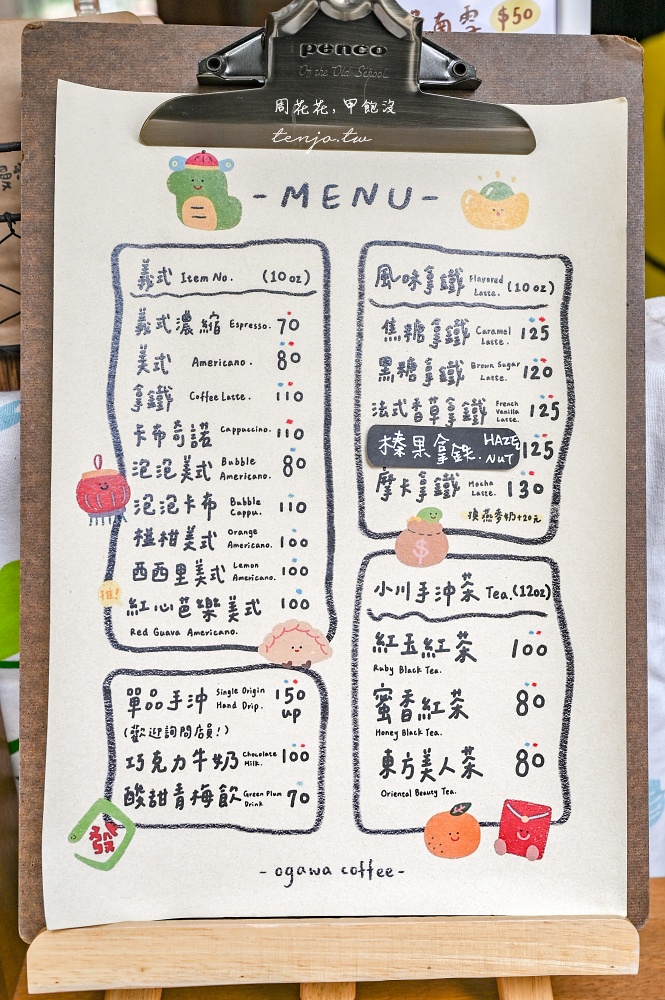 南雲 $50
penco
Of the Old School
周花花，甲飽沒
tenjo.tw
-MENU-
義式 Item No. (10oz)
義式濃縮 Espresso. 70
美式 Americano. 80
拿鐵 Coffee Latte. 110
卡布奇諾 Cappuccino. 110
泡泡美式 Bubble Americano. 80
泡泡卡布 Bubble Cappu. 110
椪柑美式 Orange Americano. 100
西西里美式 Lemon Americano. 100
推!
紅心芭樂美式 100
Red Guava Americano.
單品手沖 Single Origin Hand Drip. 150 up
(歡迎詢問店員!)
巧克力牛奶 Chocolate Milk. 100
酸甜青梅飲 Green Plum Drink 70
發
風味拿鐵 Flavored Latte. (10oz)
焦糖拿鐵 Caramel Latte. 125
黑糖拿鐵 Brown Sugar Latte. 120
法式香草拿鐵 French Vanilla Latte. 125
榛果拿鉄. HAZE NUT 125
摩卡拿鐵 Mocha Latte. 130
換燕麥奶+20元
$
小川手沖茶 Tea. (12oz)
紅玉紅茶 100
Ruby Black Tea.
蜜香紅茶 80
Honey Black Tea.
東方美人茶 80
Oriental Beauty Tea.
-ogawa coffee-